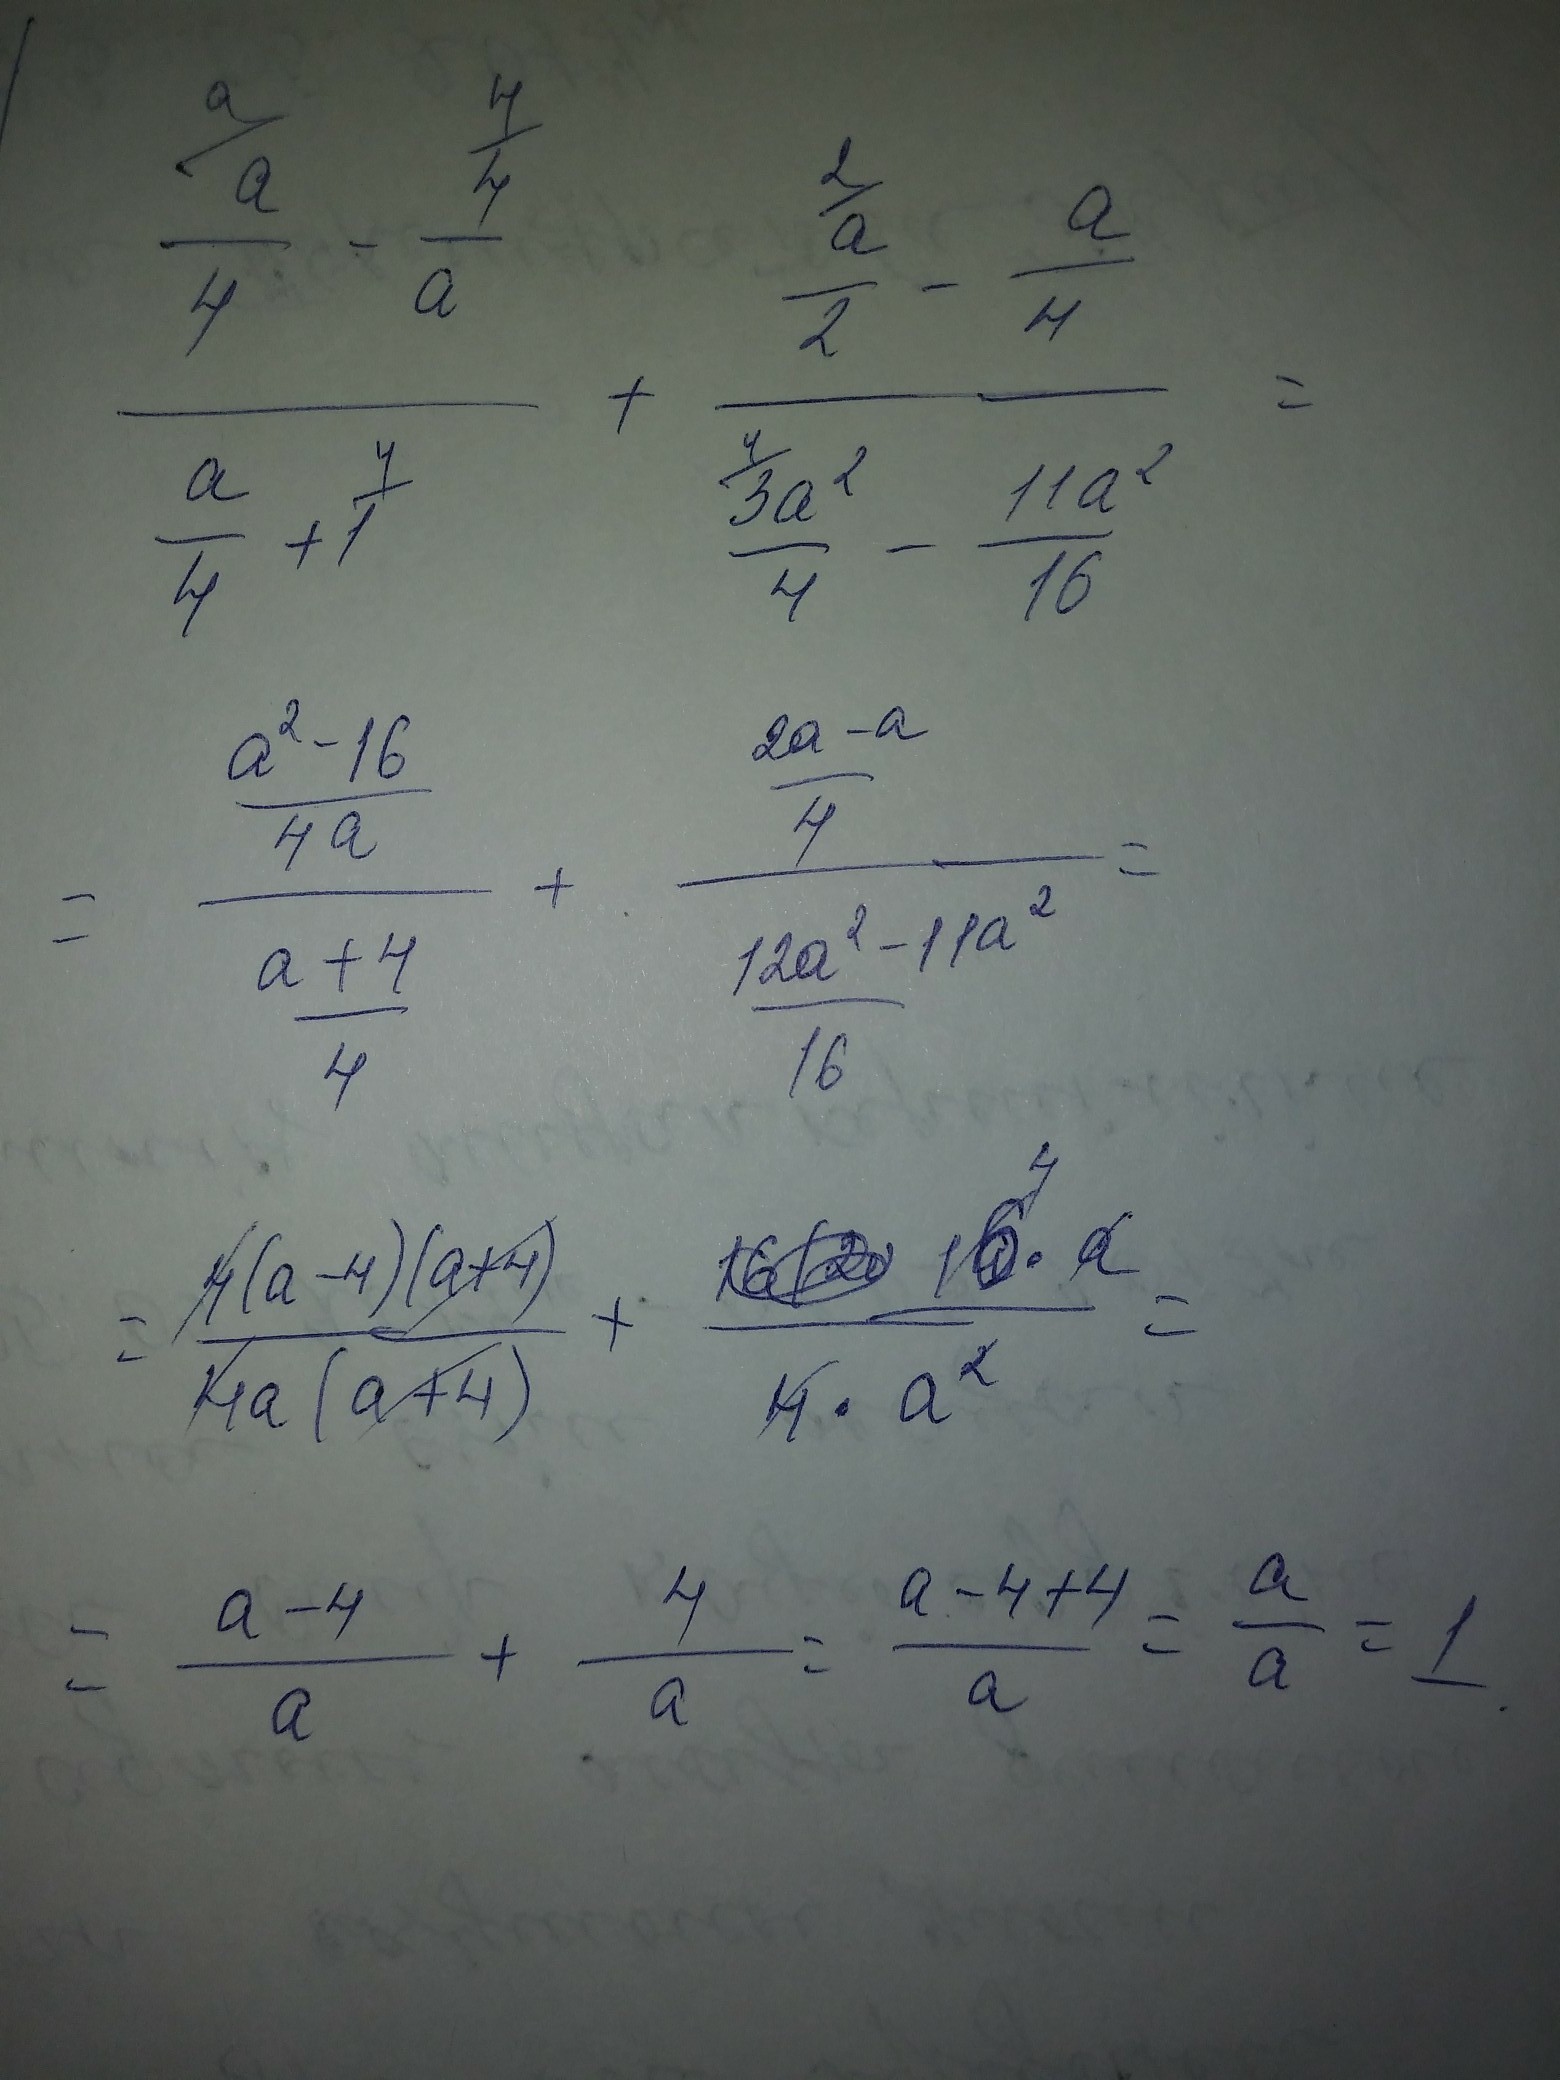 (a/4 - 4/a) / (a/4 + 1) + (a/2 - a/4) / (3a²/4 - 11a²/16) =
= ((a² - 16)/4a) / ((a + 4)/4) + ((2a - a)/4) / ((12a² - 11a²)/16) =
= 4(a - 4)(a + 4) / 4a(a + 4) + 16 · a / 4 · a² =
= (a - 4)/a + 4/a = (a - 4 + 4)/a = a/a = 1